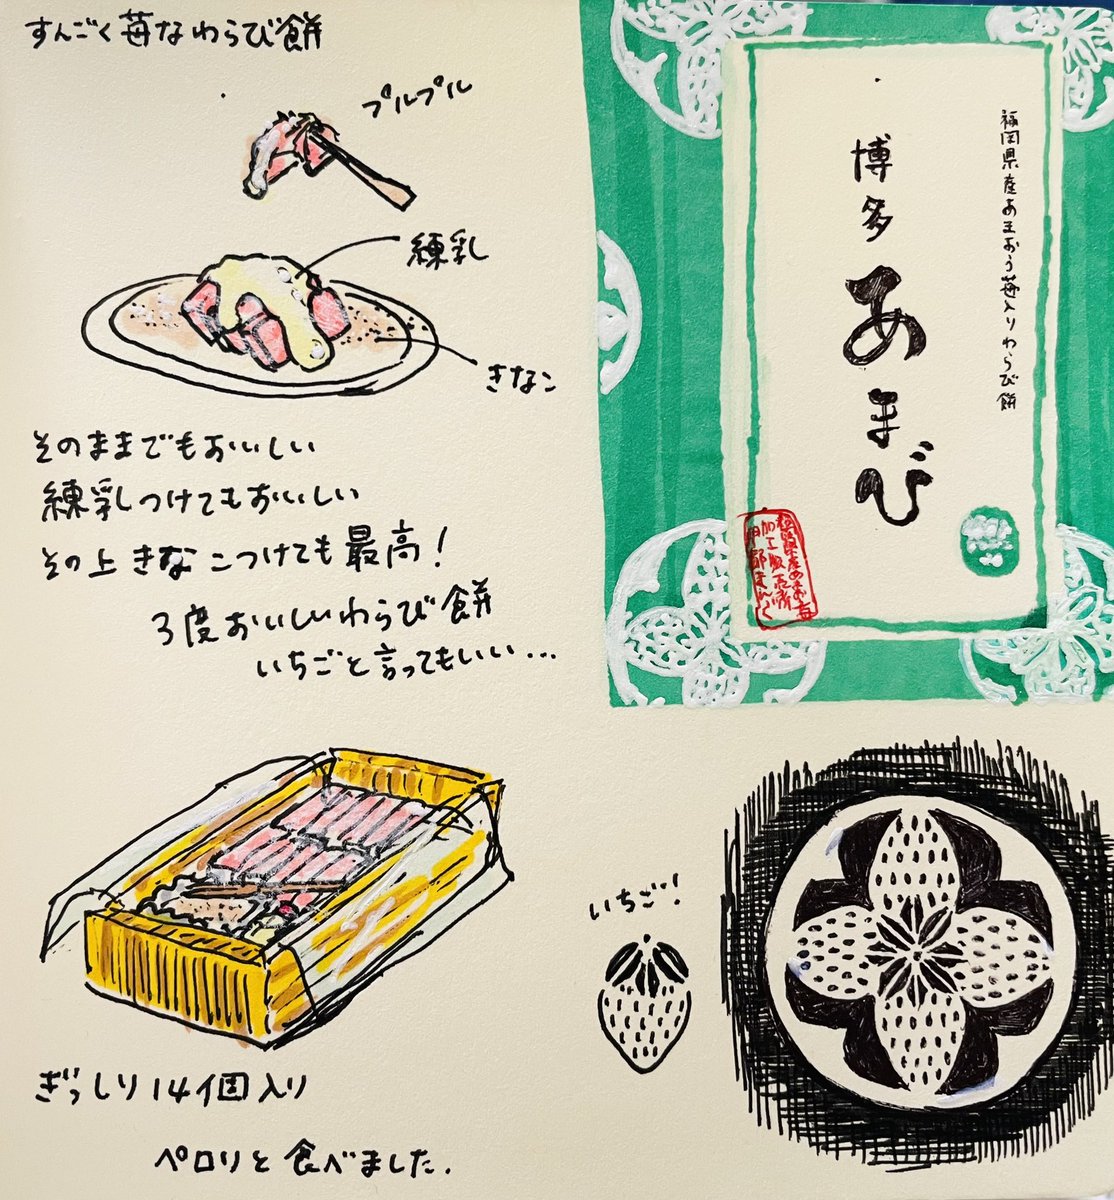 すんごく苺なわらび餅
プルプル
練乳
きなこ
そのままでもおいしい
練乳つけてもおいしい
その上きなこつけても最高!
3度おいしいわらび餅
いちごと言ってもいい...
福岡県産あまおう苺入りわらび餅
博多
あまび
加工販売者
いちご!
ぎっしり14個入り
ペロリと食べました.